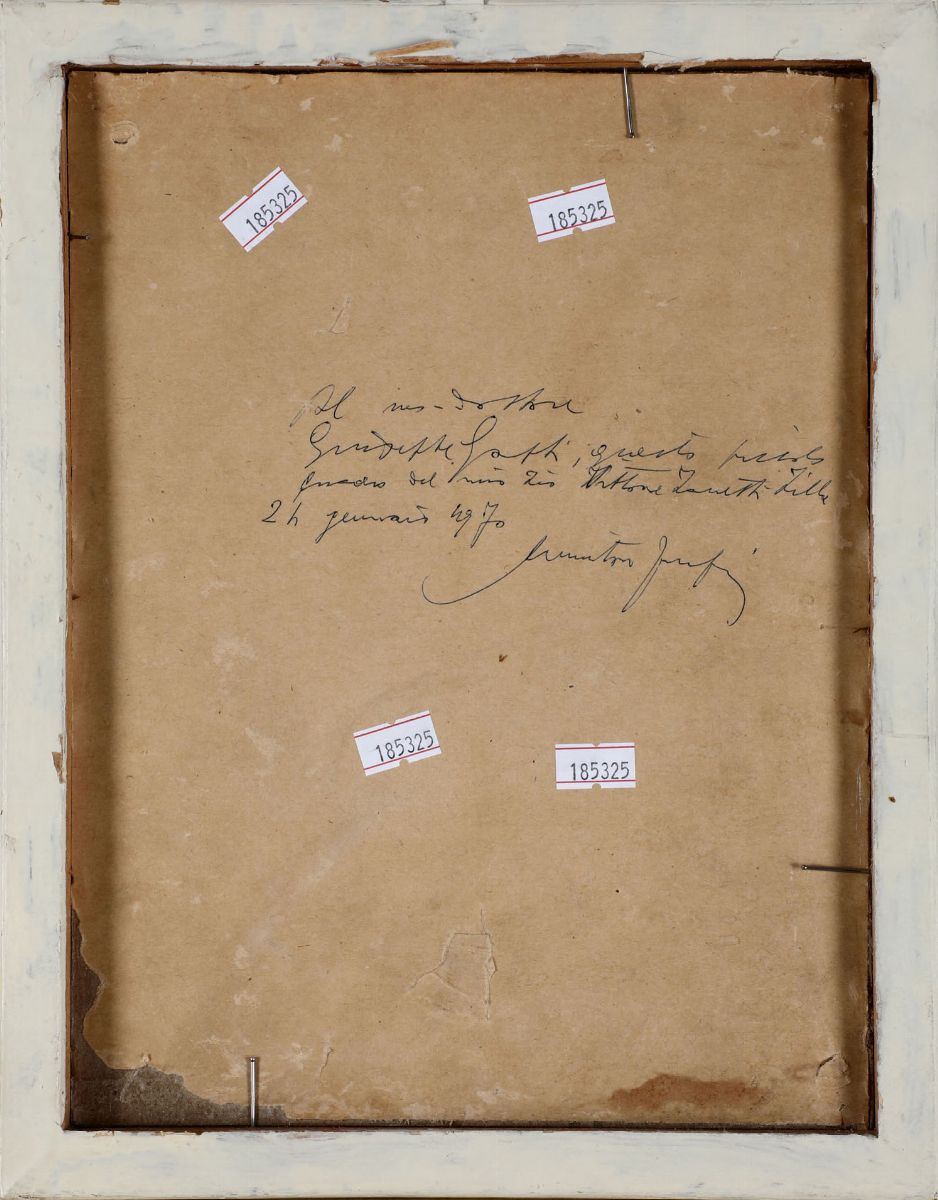 185325
185325
Al neo-dottore
Gatti, questo piccolo
quadro del mio zio Vettore Zanetti Zilla
24 gennaio 1970
185325
185325